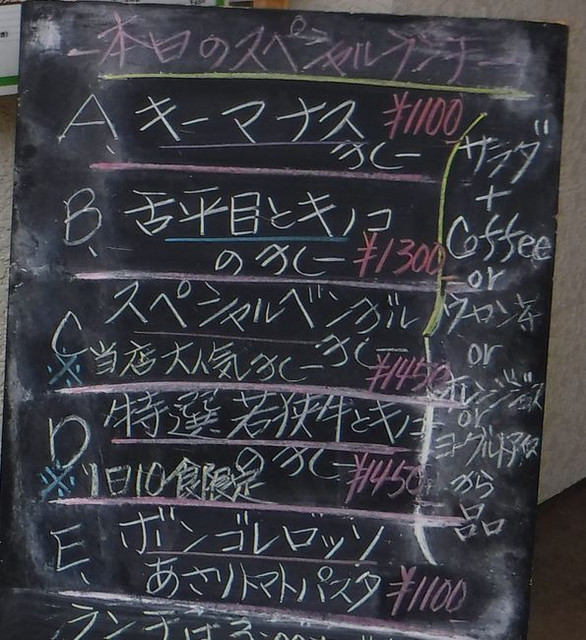 本日のスペシャルランチ
A、キーマナス ¥1100
カレー
B、舌平目とキノコ
のカレー ¥1300
C スペシャルベンガル
カレー
※当店大人気カレー ¥1450
D 特選若狭牛とキノコ
のカレー
※1日10食限定 ¥1450
E、ボンゴレロッソ
あさりトマトパスタ ¥1100
サラダ
+
Coffee
or
ウーロン茶
or
オレンジジュース
or
から
一品